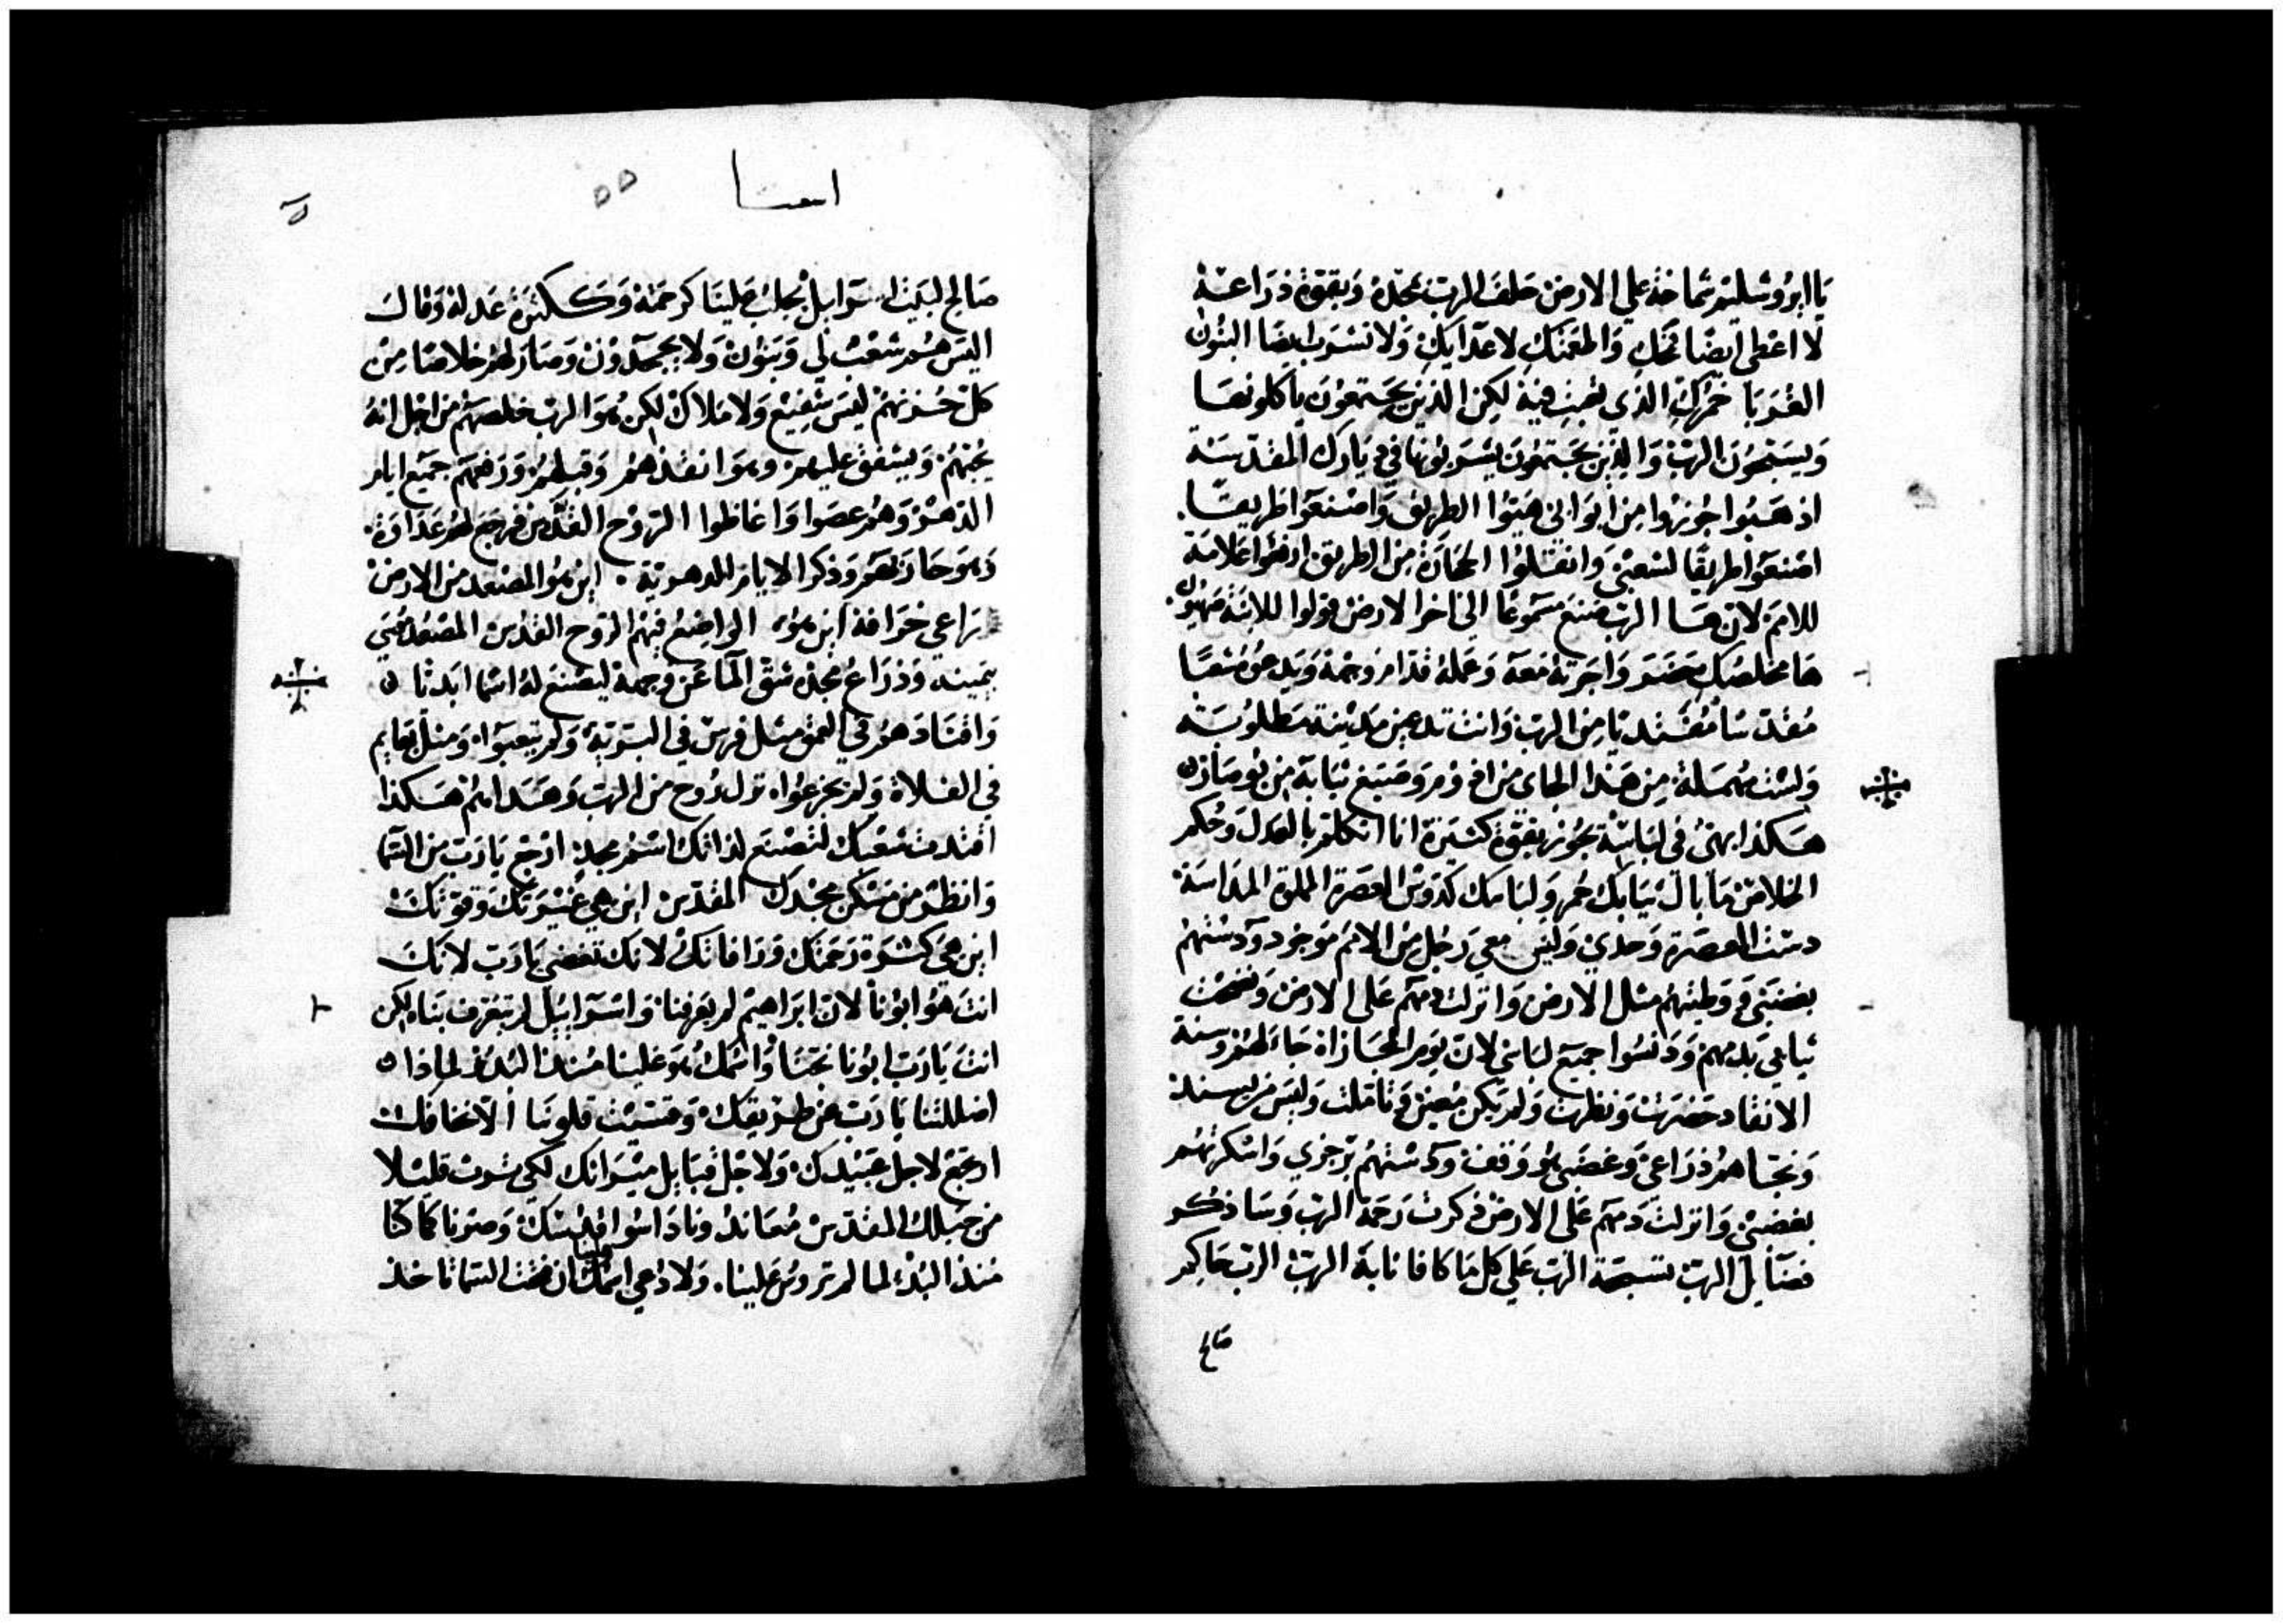 يَا ابرُوشليم شماخة علي الارض حلف الرب بمجده وَبقوة ذرَاعه
لا اعطي ايضًا قمحَكِ وَالمغتنكِ لاعدَايكِ وَلا تشرب ايضَا البنُون
الغربَا خمركِ الذي تعبتِ فيه لكن الذين يجتمعُون يَاكلونها
وَيسَبحُون الرب وَالذين يجتمعُون يشرَبُونها في ديَارك المقدسَة
اذهبُوا جُوزوا من ابوَابي هيئوا الطريق وَاصنعوا طريقا.
اصنعوا طريقًا لشعبي وَانقلوُا الحجَارة من الطريق ارفعُوا علامة
للامم لان هَا الرب صَنع مسَموعًا الي اخر الارض قولوا للابنة صهيُون.
هَا مخلصك حضر وَاجرته مَعه وَعمله قدام وجهه وَيدعُوه شعبًا
مُقدسًا مُفتديًا من الرب وَانت تدعين مَدينة مَطلوُبة
وَلسْت مهمَلة من هَذا الجاي من ادوم وصَبغ ثيَابه من بُوصَاره
هَكذا بهيُ في لبَاسه بجُوز بقوة كثيرَة انا اتكلم بالعَدل وَحُكم
الخلاص مَا بال ثيَابك حُمر وَلبَاسك كدَوس المعصرَة المملوة المدَاسَة
دست المعصرة وَحدي وَليس معي رَجُل من الامم مَوجود ودستهُم
بغضبي وَوطيتهم مثل الارض وَانزلت دمهم عَلي الارض وَنضحت
ثيابي بدمهم وَدنسُوا جميع لبَاسي لان يَوم المجَازاة جَا لهُم وسنة
الانقاد حَضرت وَنظرت وَلم يَكن مُعين وَتاملت وَليسَ من يسند
وَنجاهم ذرَاعي وَغضبي هُو وَقف ودستهُم برجزي وَاسْكرتهُم
بغضبي وَانزلت دمهم عَلي الارض ذكرت رَحمة الرب وَسَاذكر
فضَايل الرب تسبحة الرب عَلي كل مَا كافانا به الرب الرب حَاكم
صَالح
اسعيا
٥٥
صَالح لبَيت اسرَايل يجلبُ عَلينَا كرحمته وَكَكثرَة عَدله وَقالَ
اليسَ هُم شعبٌ لي وَبنُون وَلا يجحدُون وَصَار لهُم خلاصًا مِن
كل حُزنهم ليسَ شفيع وَلا مَلاك لكن هُوَ الرب خلصهُم من اجل انهُ
يحبهُم وَيشفق عليهم وَهوَ انقذهُم وَقبلهُم وَرفعهم جميع ايام
الدهر وَهُم عصَوا وَاغاظوا الرُوح القدس فرجع لهُم عَدَاوَة.
وَهوَ حَاربهم وَذكر الايام الدهريَة. اين هُو المصعد من الارض
رَاعي خرَافه اين هُو الواضِعُ فيهُم الروح القدُس المصعُد مُوسَي
بيمينه وَذرَاعُ مجده شق المَا عَن وجهه ليصنع لهُ اسمًا ابَديا ه
وَاقتَادهُم في العمق مثل فرس في البَرية وَلم يتعبَوا. وَمثل بَهايم
في الفلاة وَلم يجزعُوا. نزل رُوح من الرب وَهَدَاهُم هَكذا
اقتدت شعبَك لتصنع لذاتك اسم مجد. ارجع يَارَب من السمَا
وَانظر من مَسكن مجدك المقدس اين هي غيرَتك وَقوتكَ
اين هي كثرة رَحمتك وَرَافاتك لانك تغضي يَارَب لانكَ
انتَ هُو ابُونا لان ابرَاهيم لم يَعرفنا وَاسرَاييل لم يَعرف بنَا. لكن
انتَ يَارَب ابُونا نجنَا وَاسْمك هُو عَلينا مُنذ البُدء لماذا ه
اضللتنا يَارَب عَن طريقك وَقسيْت قلوبَنا الا نخافك
ارجع لاجل عَبيْدك وَلاجل قبَايل ميرَاثك لكي نرث قليْلا
من جبلك المقدس مُعاندُونا دَاسُوا قدُسك وَصرنا كمَا كنا
مُنذ البُدء لما لم ترؤس عَلينا. وَلا دُعي اسمُك علينا ان فتحت السَما تاخذ